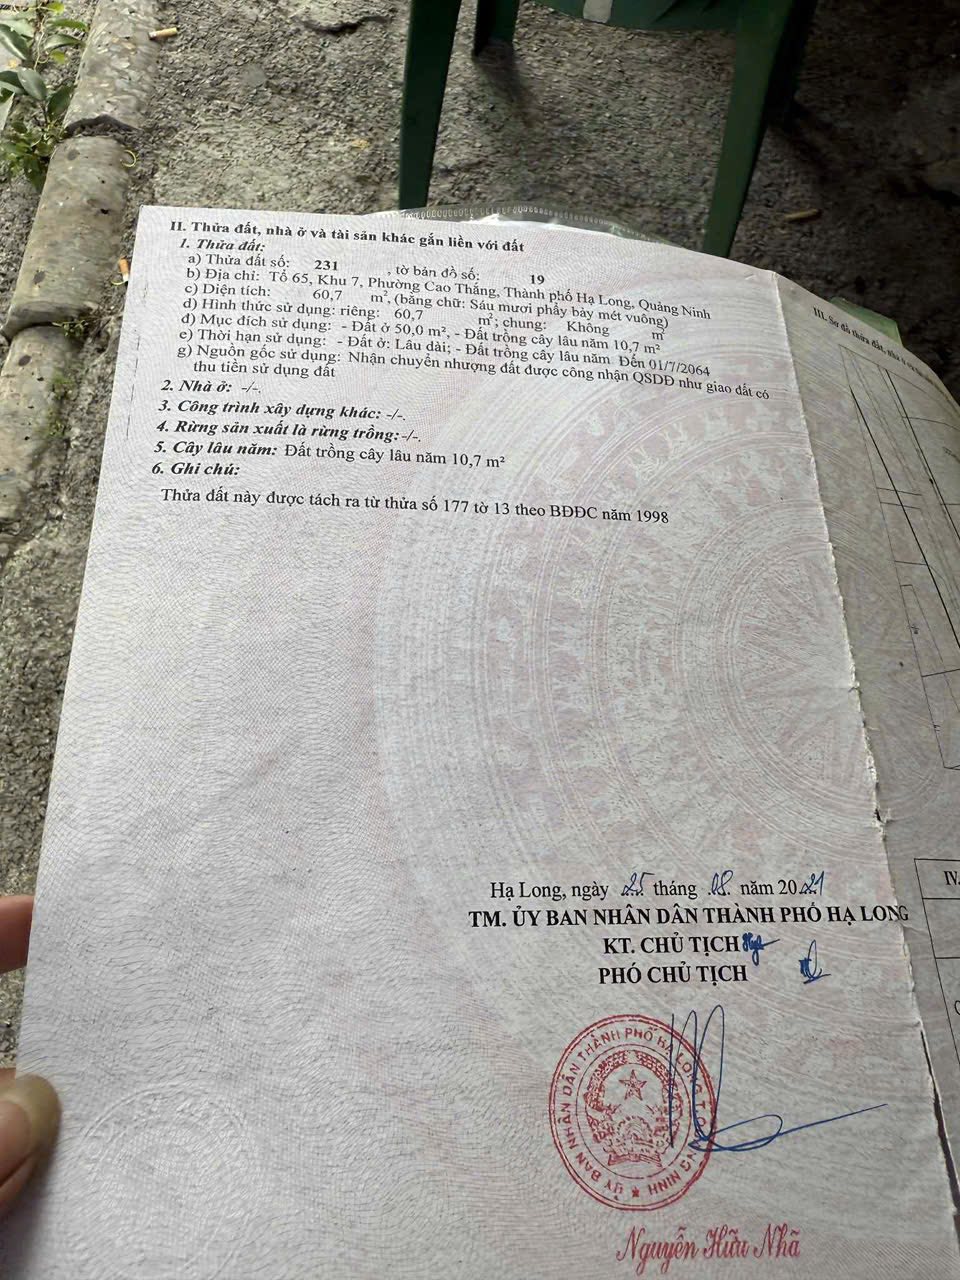 II. Thửa đất, nhà ở và tài sản khác gắn liền với đất
1. Thửa đất:
a) Thửa đất số: 231 , tờ bản đồ số: 19
b) Địa chỉ: Tổ 65, Khu 7, Phường Cao Thắng, Thành phố Hạ Long, Quảng Ninh
c) Diện tích: 60,7 m², (bằng chữ: Sáu mươi phẩy bảy mét vuông)
d) Hình thức sử dụng: riêng: 60,7 m²; chung: Không m²
đ) Mục đích sử dụng: - Đất ở 50,0 m², - Đất trồng cây lâu năm 10,7 m²
e) Thời hạn sử dụng: - Đất ở: Lâu dài; - Đất trồng cây lâu năm Đến 01/7/2064
g) Nguồn gốc sử dụng: Nhận chuyển nhượng đất được công nhận QSDĐ như giao đất có
thu tiền sử dụng đất
2. Nhà ở: -/-.
3. Công trình xây dựng khác: -/-.
4. Rừng sản xuất là rừng trồng: -/-.
5. Cây lâu năm: Đất trồng cây lâu năm 10,7 m²
6. Ghi chú:
Thửa đất này được tách ra từ thửa số 177 tờ 13 theo BĐĐC năm 1998
Hạ Long, ngày 25 tháng 08 năm 2021
TM. ỦY BAN NHÂN DÂN THÀNH PHỐ HẠ LONG
KT. CHỦ TỊCH
PHÓ CHỦ TỊCH
ỦY BAN NHÂN DÂN THÀNH PHỐ HẠ LONG T.QUẢNG NINH
Nguyễn Hữu Nhã
III. Sơ đồ thửa đất, nhà ở
IV.